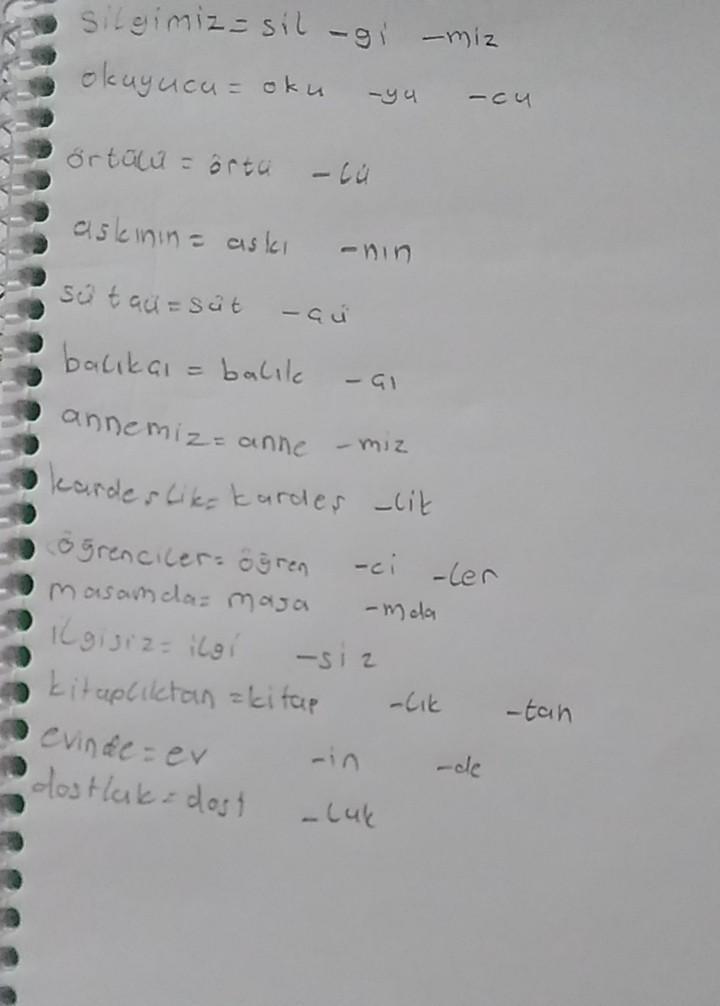 silgimiz = sil -gi -miz
okuyucu = oku -yu -cu
örtülü = örtü -lü
askının = askı -nın
sütçü = süt -çü
balıkçı = balık -çı
annemiz = anne -miz
kardeşlik = kardeş -lik
öğrenciler = öğren -ci -ler
masamda = masa -mda
ilgisiz = ilgi -siz
kitaplıktan = kitap -lık -tan
evinde = ev -in -de
dostluk = dost -luk